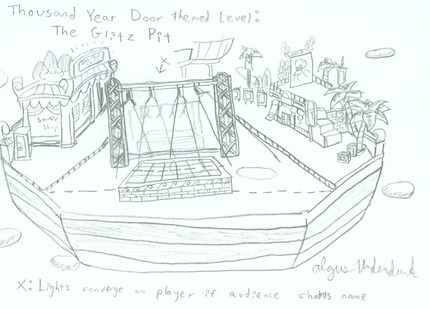 Thousand Year Door themed Level:
The Glitz Pit
X
X: Lights converge on player if audience chants name